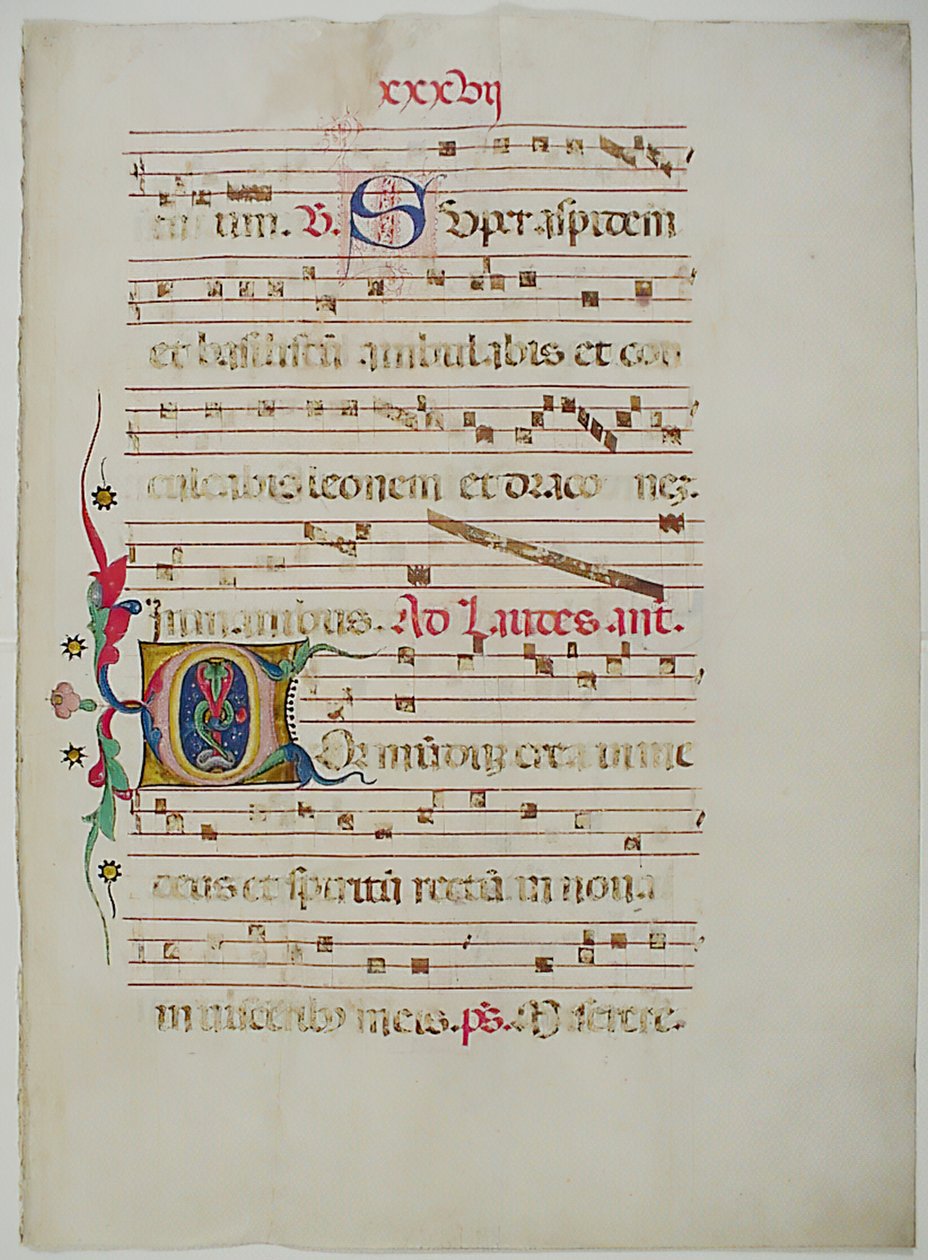 xxxvij
tu um. ℟. Super aspidem
et basiliscū ambulabis et con
culcabis leonem et draco neȝ.
In manibus. Ad Laudes ant.
Cor mūdū crea in me
deus et spiritū rectū in noua
in uisceribꝰ meis. ps̄. Miserere.